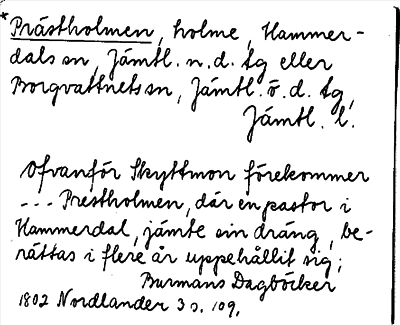 * Prästholmen, holme, Hammer-
dals sn, Jämtl. n. d. tg eller
Borgvattnets sn, Jämtl. ö. d. tg,
Jämtl. l.
Ofvanför Skyttmon förekommer
--- Prestholmen, där en pastor i
Hammerdal, jämte sin dräng, be-
rättas i flere år uppehållit sig;
Burmans Dagböcker
1802 Nordlander 3 s. 109.